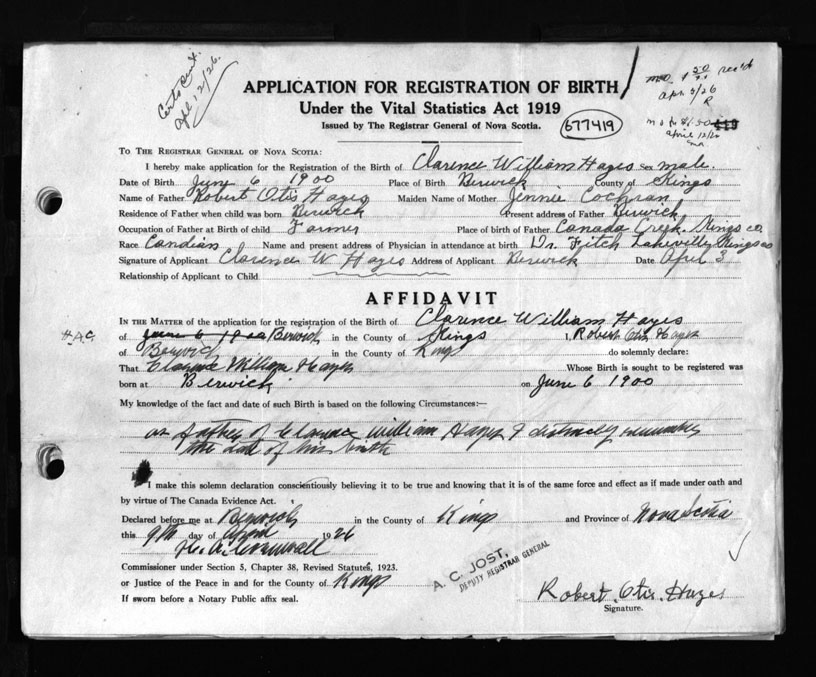 Certs sent.
Apl 12/26.
APPLICATION FOR REGISTRATION OF BIRTH
Under the Vital Statistics Act 1919
Issued by The Registrar General of Nova Scotia.
677419
m o $1.50 rec'd
apr 5/26
R
m o $1.50
april 12/26
TO THE REGISTRAR GENERAL OF NOVA SCOTIA:
I hereby make application for the Registration of the Birth of Clarence William Hayes sex male.
Date of Birth June 6 1900 Place of Birth Berwick County of Kings
Name of Father Robert Otis Hayes Maiden Name of Mother Jennie Cochran
Residence of Father when child was born Berwick Present address of Father Berwick
Occupation of Father at Birth of child Farmer Place of birth of Father Canada Creek Kings co
Race Candian Name and present address of Physician in attendance at birth Dr. Fitch Lakeville Kings co
Signature of Applicant Clarence W Hayes Address of Applicant Berwick Date April 3
Relationship of Applicant to Child
AFFIDAVIT
IN THE MATTER of the application for the registration of the Birth of Clarence William Hayes
H.A.C. of June 6 1900 Berwick in the County of Kings I, Robert Otis Hayes
of Berwick in the County of Kings do solemnly declare:
That Clarence William Hayes Whose Birth is sought to be registered was
born at Berwick on June 6 1900
My knowledge of the fact and date of such Birth is based on the following Circumstances:—
as father of Clarence William Hayes I distinctly remember
the date of his birth
I make this solemn declaration conscientiously believing it to be true and knowing that it is of the same force and effect as if made under oath and
by virtue of The Canada Evidence Act.
Declared before me at Berwick in the County of Kings and Province of Nova Scotia
this 9th day of April 1926
H. A. Cornwall
Commissioner under Section 5, Chapter 38, Revised Statutes, 1923.
or Justice of the Peace in and for the County of Kings
If sworn before a Notary Public affix seal.
A. C. JOST,
DEPUTY REGISTRAR GENERAL
Robert Otis Hayes
Signature.